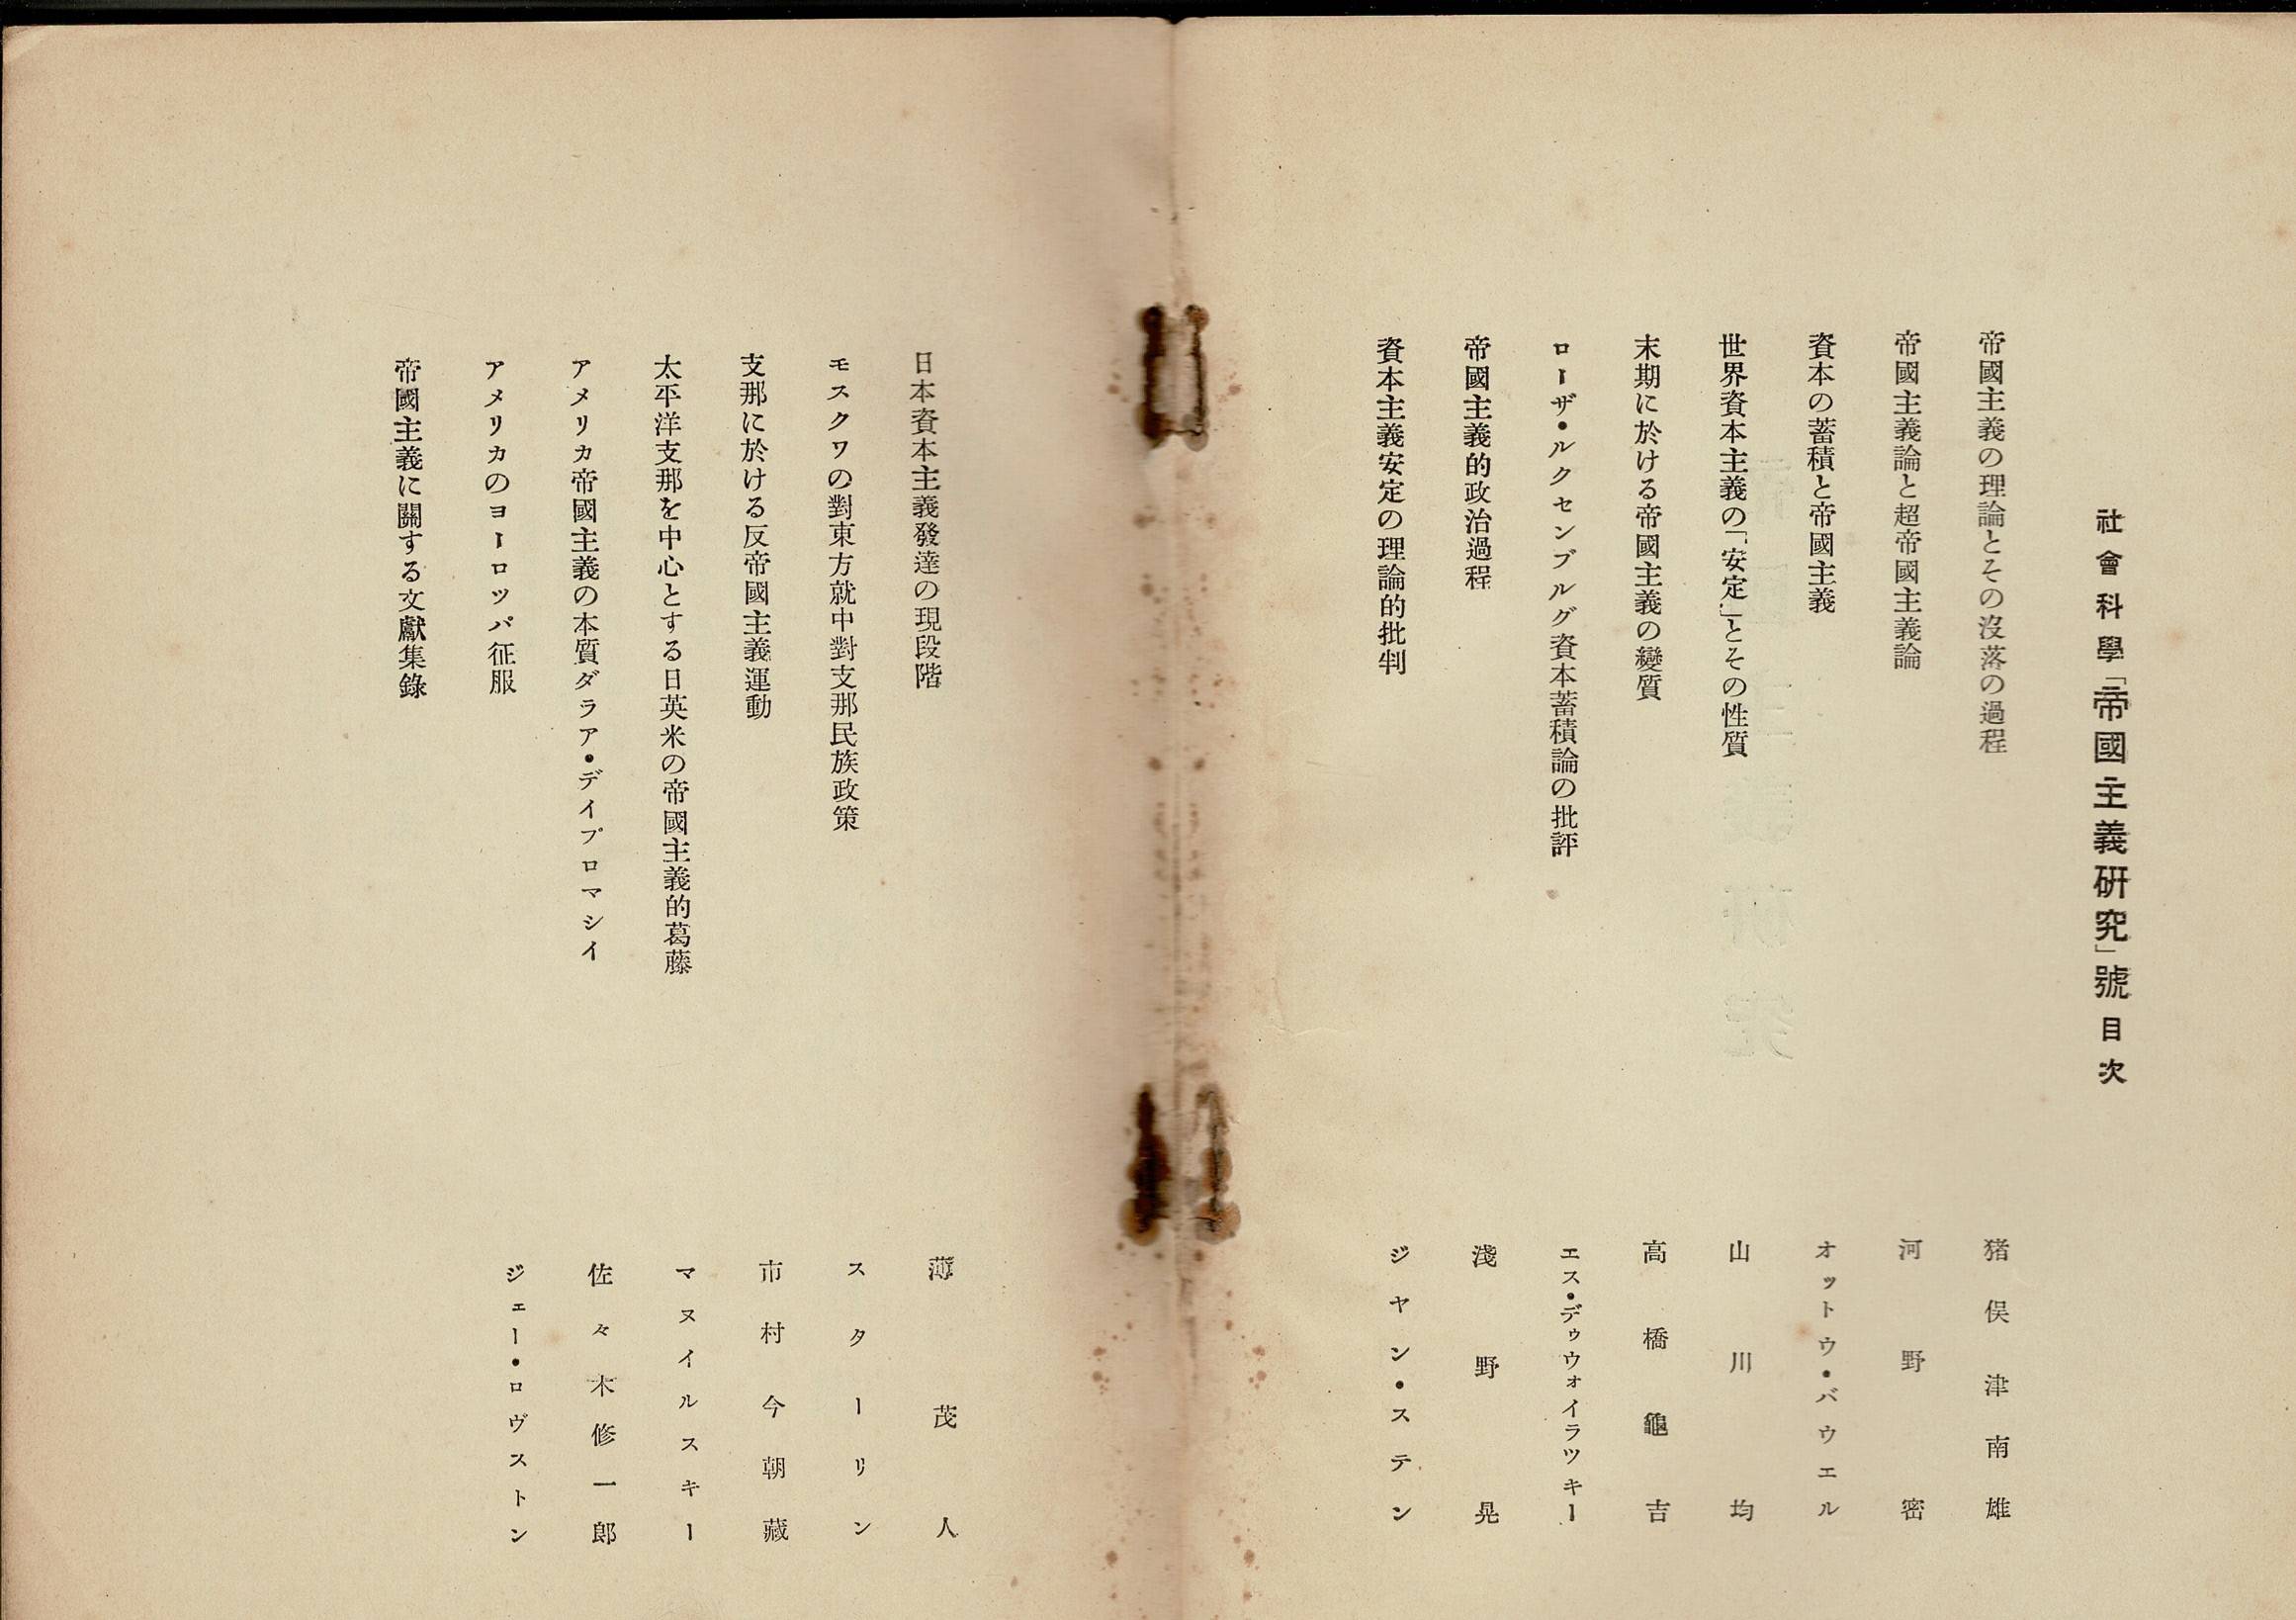 社會科學「帝國主義研究」號目次
帝國主義の理論とその沒落の過程
猪俣津南雄
帝國主義論と超帝國主義論
河野密
資本の蓄積と帝國主義
オットウ・バウエル
世界資本主義の「安定」とその性質
山川均
末期に於ける帝國主義の變質
高橋龜吉
ローザ・ルクセンブルグ資本蓄積論の批評
エス・デゥウォイラツキー
帝國主義的政治過程
淺野晃
資本主義安定の理論的批判
ジヤン・ステン
日本資本主義發達の現段階
薄茂人
モスクワの對東方就中對支那民族政策
スターリン
支那に於ける反帝國主義運動
市村今朝藏
太平洋支那を中心とする日英米の帝國主義的葛藤
マヌイルスキー
アメリカ帝國主義の本質ダラア・デイプロマシイ
佐々木修一郎
アメリカのヨーロッパ征服
ジェー・ロヴストン
帝國主義に關する文獻集錄